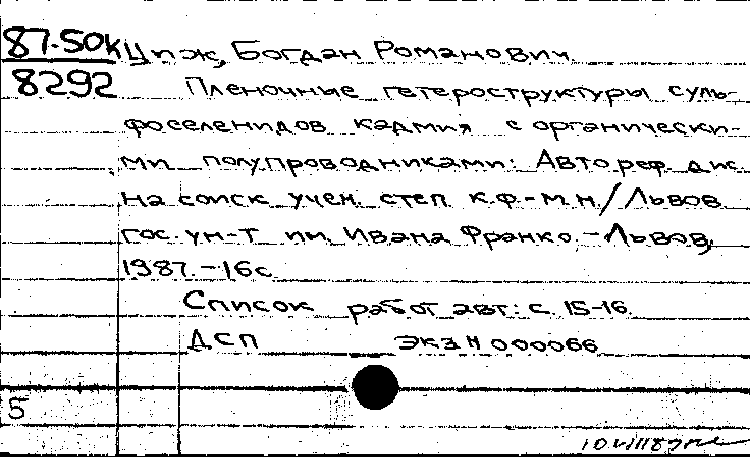 87-50к Цпж, Богдан Романович
8292 Пленочные гетероструктуры суль-
фоселенидов кадмия с органически-
ми полупроводниками: Автореф. дис.
на соиск. учен. степ. к.ф.-м.н./Львов.
гос. ун-т им. Ивана Франко.-Львов,
1987.-16с
Список работ авт.: с. 15-16.
ДСП экз N 000066
5